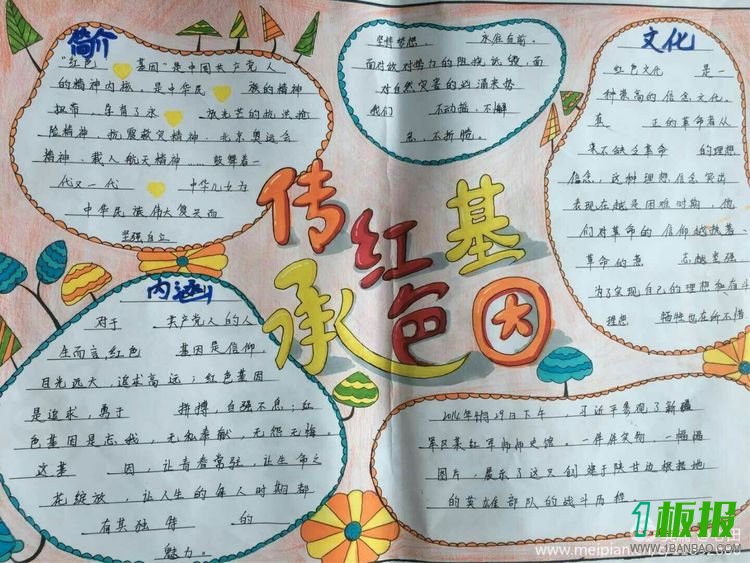 简介
"红色 基因"是中国共产党人
的精神内核,是中华民 族的精神
纽带,孕育了永 放光芒的抗洪抢
险精神、抗震救灾精神、北京奥运会
精神、载人航天精神……鼓舞着一
代又一代 中华儿女为
中华民族伟大复兴而
坚强自立
坚持梦想, 永在自前。
面对敌对势力的阻挠诋毁,面
对自然灾害的凶涌来势
我们 不动摇、不懈
怠、不折腾。
文化
红色文化 是一
种崇高的信念文化。
真 正的革命者从
来不缺乏革命 的理想
信念,这种理想信念突出
表现在越是困难时期,他
们对革命的信仰越执着、
革命的意 志越坚强
为了实现自己的理想和奋斗
理想 牺牲也在所不惜
传承红色基因
内涵
对于 共产党人的人
生而言,红色 基因是信仰,
目光远大,追求高远;红色基因
是追求,勇于 拼搏,自强不息;红
色基因是忘我,无私奉献,无怨无悔。
这基 因,让青春常驻,让生命之
花绽放,让人生的每人时期都
有其独特 的
魅力。
2014年4月29日下午,习近平参观了新疆
军区某红军师师史馆。一件件实物、一幅幅
图片,展示了这只创建于陕甘边根据地
的英雄部队的战斗历程。
1板报
WWW.1BANBAO.COM